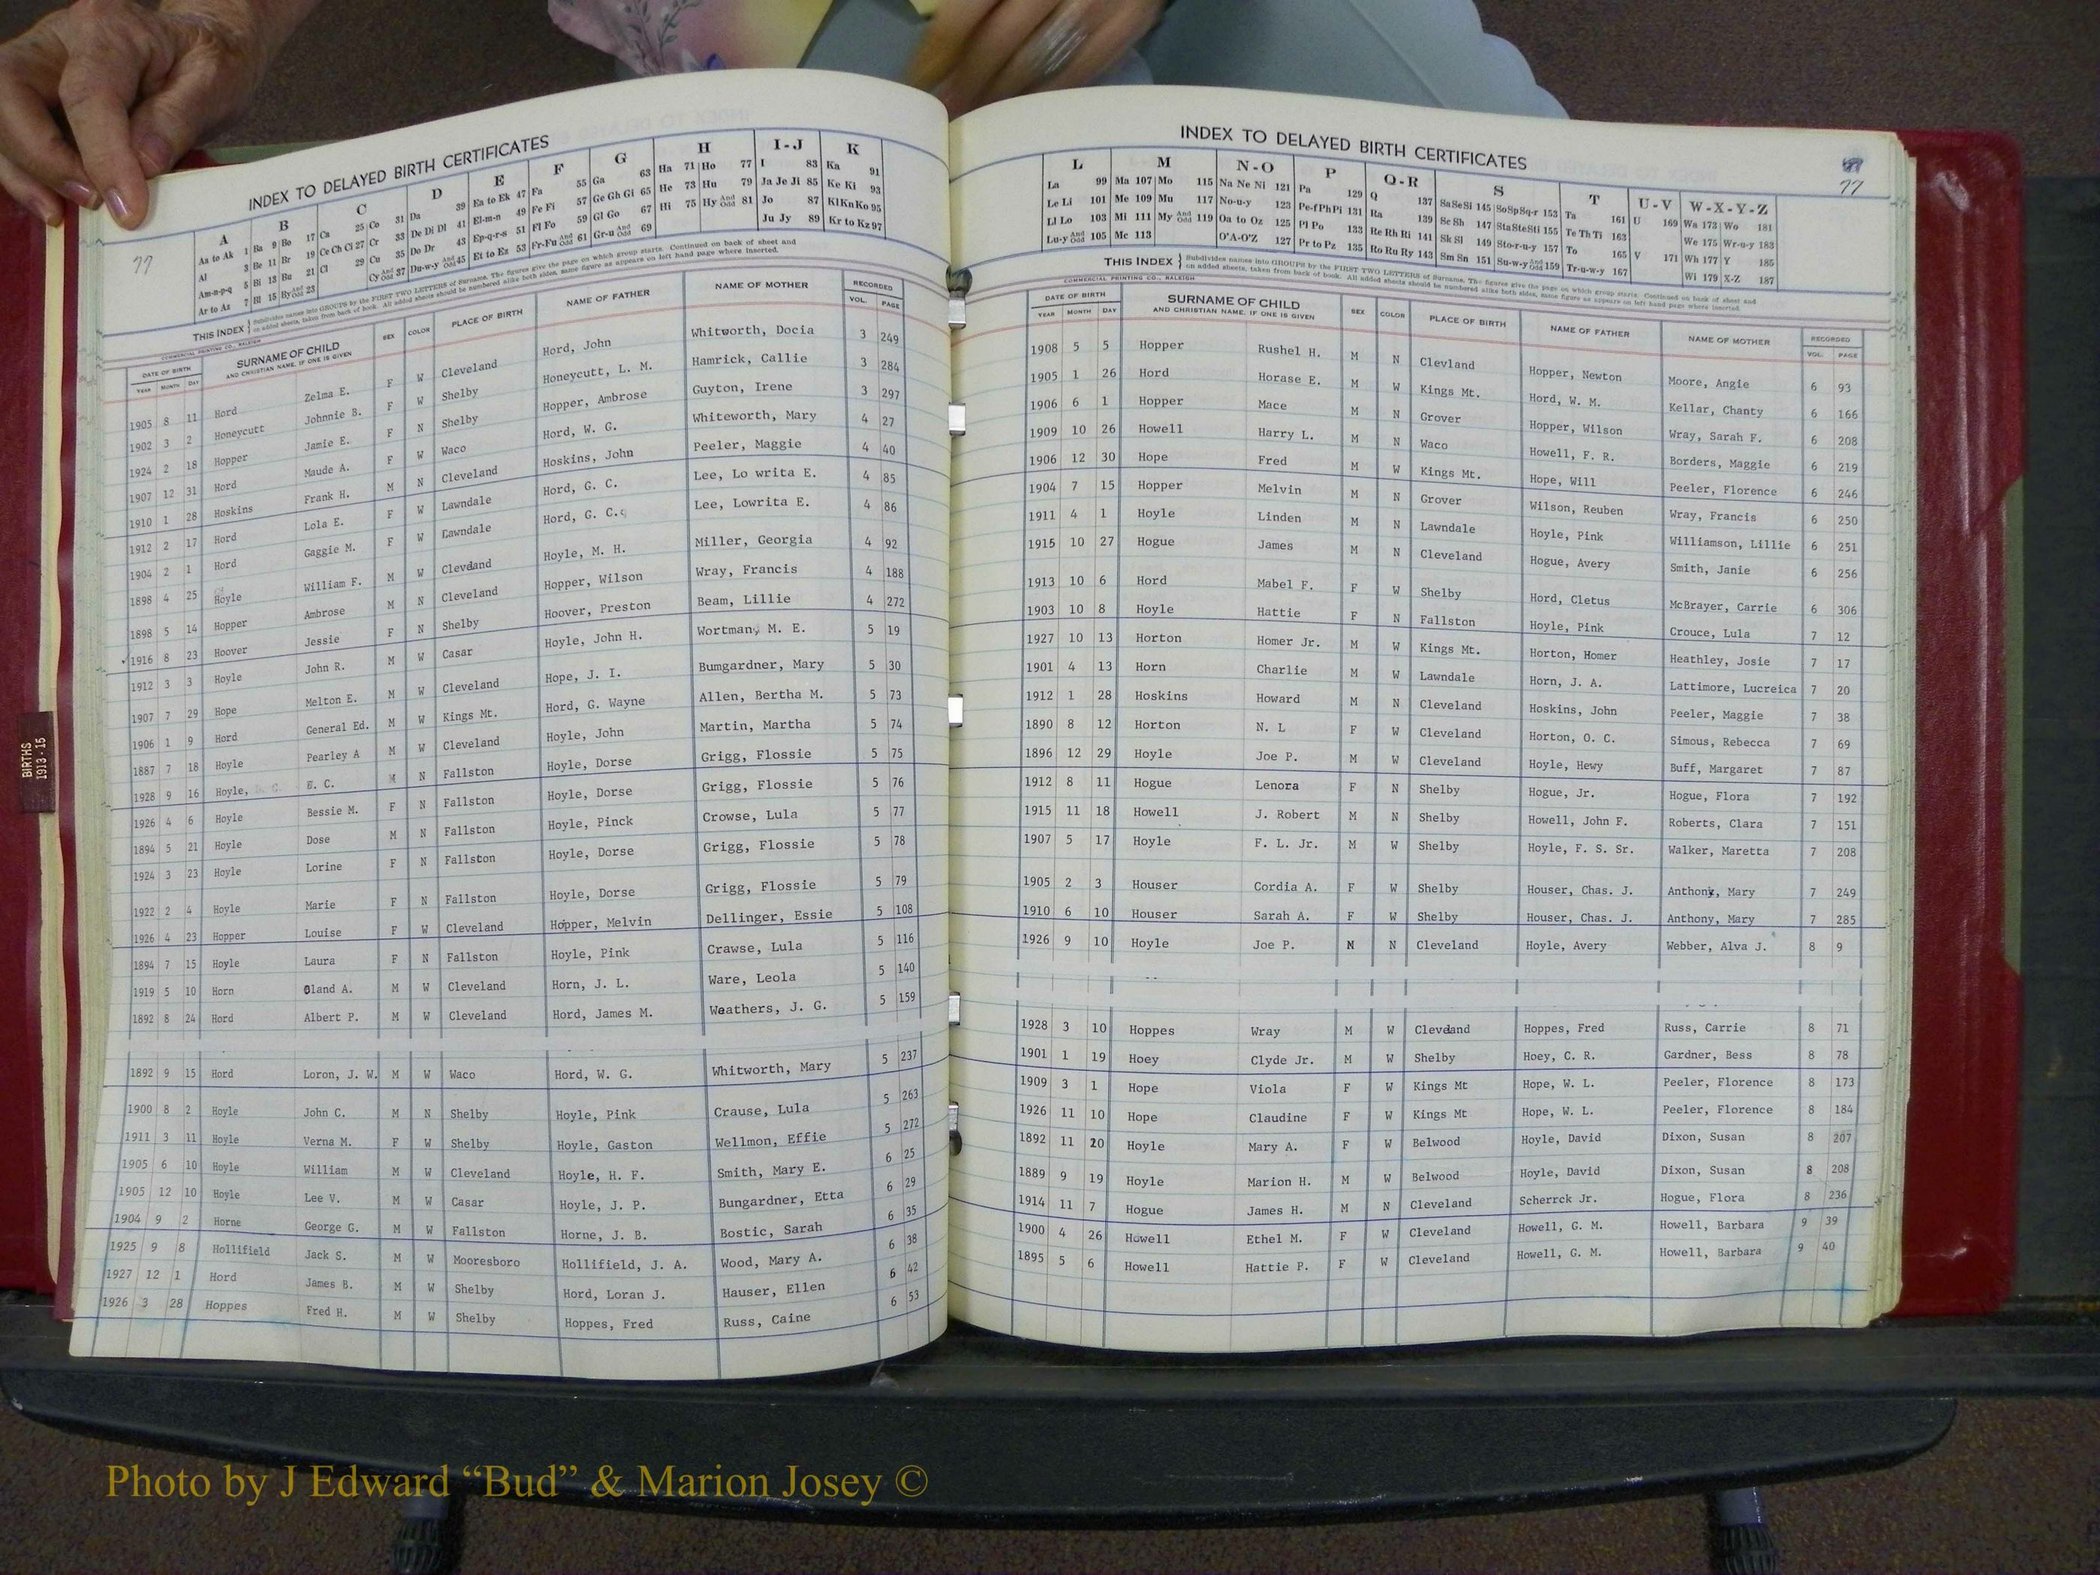 INDEX TO DELAYED BIRTH CERTIFICATES
77
A B C D E F G H I-J K
Aa to Ak 1 Ba 9 Bo 17 Ca 25 Co 31 Da 39 Ea to Ek 47 Fa 55 Ga 63 Ha 71 Ho 77 I 83 Ka 91
Al 3 Be 11 Br 19 Ce Ch Ci 27 Cr 33 De Di Dl 41 El-m-n 49 Fe Fi 57 Ge Gh Gi 65 He 73 Hu 79 Ja Je Ji 85 Ke Ki 93
Am-n-p-q 5 Bi 13 Bu 21 Cl 29 Cu 35 Do Dr 43 Ep-q-r-s 51 Fl Fo 59 Gl Go 67 Hi 75 Hy And Odd 81 Jo 87 Kl Kn Ko 95
Ar to Az 7 Bl 15 By And Odd 23 Cy And Odd 37 Du-w-y And Odd 45 Et to Ez 53 Fr-Fu And Odd 61 Gr-u And Odd 69 Ju Jy 89 Kr to Kz 97
THIS INDEX Subdivides names into GROUPS by the FIRST TWO LETTERS of Surname. The figures give the page on which group starts. Continued on back of sheet and
on added sheets, taken from back of book. All added sheets should be numbered alike both sides, same figure as appears on left hand page where inserted.
COMMERCIAL PRINTING CO., RALEIGH
DATE OF BIRTH SURNAME OF CHILD SEX COLOR PLACE OF BIRTH NAME OF FATHER NAME OF MOTHER RECORDED
YEAR MONTH DAY AND CHRISTIAN NAME, IF ONE IS GIVEN VOL. PAGE
1905 8 11 Hord Zelma E. F W Cleveland Hord, John Whitworth, Docia 3 249
1902 3 2 Honeycutt Johnnie B. F W Shelby Honeycutt, L. M. Hamrick, Callie 3 284
1924 2 18 Hopper Jamie E. F N Shelby Hopper, Ambrose Guyton, Irene 3 297
1907 12 31 Hord Maude A. F W Waco Hord, W. G. Whiteworth, Mary 4 27
1910 1 28 Hoskins Frank H. M N Cleveland Hoskins, John Peeler, Maggie 4 40
1912 2 17 Hord Lola E. F W Lawndale Hord, G. C. Lee, Lo writa E. 4 85
1904 2 1 Hord Gaggie M. F W Lawndale Hord, G. C. Lee, Lowrita E. 4 86
1898 4 25 Hoyle William F. M W Cleveland Hoyle, M. H. Miller, Georgia 4 92
1898 5 14 Hopper Ambrose M N Cleveland Hopper, Wilson Wray, Francis 4 188
1916 8 23 Hoover Jessie F N Shelby Hoover, Preston Beam, Lillie 4 272
1912 3 3 Hoyle John R. M W Casar Hoyle, John H. Wortman, M. E. 5 19
1907 7 29 Hope Melton E. M W Cleveland Hope, J. I. Bumgardner, Mary 5 30
1906 1 9 Hord General Ed. M W Kings Mt. Hord, G. Wayne Allen, Bertha M. 5 73
1887 7 18 Hoyle Pearley A M W Cleveland Hoyle, John Martin, Martha 5 74
1928 9 16 Hoyle, E. C. M N Fallston Hoyle, Dorse Grigg, Flossie 5 75
1926 4 6 Hoyle Bessie M. F N Fallston Hoyle, Dorse Grigg, Flossie 5 76
1894 5 21 Hoyle Dose M N Fallston Hoyle, Pinck Crowse, Lula 5 77
1924 3 23 Hoyle Lorine F N Fallston Hoyle, Dorse Grigg, Flossie 5 78
1922 2 4 Hoyle Marie F N Fallston Hoyle, Dorse Grigg, Flossie 5 79
1926 4 23 Hopper Louise F W Cleveland Hopper, Melvin Dellinger, Essie 5 108
1894 7 15 Hoyle Laura F N Fallston Hoyle, Pink Crawse, Lula 5 116
1919 5 10 Horn Oland A. M W Cleveland Horn, J. L. Ware, Leola 5 140
1892 8 24 Hord Albert P. M W Cleveland Hord, James M. Weathers, J. G. 5 159
1892 9 15 Hord Loron, J. W. M W Waco Hord, W. G. Whitworth, Mary 5 237
1900 8 2 Hoyle John C. M N Shelby Hoyle, Pink Crause, Lula 5 263
1911 3 11 Hoyle Verna M. F W Shelby Hoyle, Gaston Wellmon, Effie 5 272
1905 6 10 Hoyle William M W Cleveland Hoyle, H. F. Smith, Mary E. 6 25
1905 12 10 Hoyle Lee V. M W Casar Hoyle, J. P. Bungardner, Etta 6 29
1904 9 2 Horne George G. M W Fallston Horne, J. B. Bostic, Sarah 6 35
1925 9 8 Hollifield Jack S. M W Mooresboro Hollifield, J. A. Wood, Mary A. 6 38
1927 12 1 Hord James B. M W Shelby Hord, Loran J. Hauser, Ellen 6 42
1926 3 28 Hoppes Fred H. M W Shelby Hoppes, Fred Russ, Caine 6 53
INDEX TO DELAYED BIRTH CERTIFICATES
77
L M N-O P Q-R S T U-V W-X-Y-Z
La 99 Ma 107 Mo 115 Na Ne Ni 121 Pa 129 Q 137 Sa Se Si 145 So Sp Sq-r 153 Ta 161 U 169 Wa 173 Wo 181
Le Li 101 Me 109 Mu 117 No-u-y 123 Pe-f Ph Pi 131 Ra 139 Sc Sh 147 Sta Ste Sti 155 Te Th Ti 163 We 175 Wr-u-y 183
Ll Lo 103 Mi 111 My And Odd 119 Oa to Oz 125 Pl Po 133 Re Rh Ri 141 Sk Sl 149 Sto-r-u-y 157 To 165 V 171 Wh 177 Y 185
Lu-y And Odd 105 Mc 113 O'A-O'Z 127 Pr to Pz 135 Ro Ru Ry 143 Sm Sn 151 Su-w-y And Odd 159 Tr-u-w-y 167 Wi 179 X-Z 187
THIS INDEX Subdivides names into GROUPS by the FIRST TWO LETTERS of Surname. The figures give the page on which group starts. Continued on back of sheet and
on added sheets, taken from back of book. All added sheets should be numbered alike both sides, same figure as appears on left hand page where inserted.
COMMERCIAL PRINTING CO., RALEIGH
DATE OF BIRTH SURNAME OF CHILD SEX COLOR PLACE OF BIRTH NAME OF FATHER NAME OF MOTHER RECORDED
YEAR MONTH DAY AND CHRISTIAN NAME, IF ONE IS GIVEN VOL. PAGE
1908 5 5 Hopper Rushel H. M N Clevland Hopper, Newton Moore, Angie 6 93
1905 1 26 Hord Horase E. M W Kings Mt. Hord, W. M. Kellar, Chanty 6 166
1906 6 1 Hopper Mace M N Grover Hopper, Wilson Wray, Sarah F. 6 208
1909 10 26 Howell Harry L. M N Waco Howell, F. R. Borders, Maggie 6 219
1906 12 30 Hope Fred M W Kings Mt. Hope, Will Peeler, Florence 6 246
1904 7 15 Hopper Melvin M N Grover Wilson, Reuben Wray, Francis 6 250
1911 4 1 Hoyle Linden M N Lawndale Hoyle, Pink Williamson, Lillie 6 251
1915 10 27 Hogue James M N Cleveland Hogue, Avery Smith, Janie 6 256
1913 10 6 Hord Mabel F. F W Shelby Hord, Cletus McBrayer, Carrie 6 306
1903 10 8 Hoyle Hattie F N Fallston Hoyle, Pink Crouce, Lula 7 12
1927 10 13 Horton Homer Jr. M W Kings Mt. Horton, Homer Heathley, Josie 7 17
1901 4 13 Horn Charlie M W Lawndale Horn, J. A. Lattimore, Lucreica 7 20
1912 1 28 Hoskins Howard M N Cleveland Hoskins, John Peeler, Maggie 7 38
1890 8 12 Horton N. L F W Cleveland Horton, O. C. Simous, Rebecca 7 69
1896 12 29 Hoyle Joe P. M W Cleveland Hoyle, Hewy Buff, Margaret 7 87
1912 8 11 Hogue Lenora F N Shelby Hogue, Jr. Hogue, Flora 7 192
1915 11 18 Howell J. Robert M N Shelby Howell, John F. Roberts, Clara 7 151
1907 5 17 Hoyle F. L. Jr. M W Shelby Hoyle, F. S. Sr. Walker, Maretta 7 208
1905 2 3 Houser Cordia A. F W Shelby Houser, Chas. J. Anthony, Mary 7 249
1910 6 10 Houser Sarah A. F W Shelby Houser, Chas. J. Anthony, Mary 7 285
1926 9 10 Hoyle Joe P. M N Cleveland Hoyle, Avery Webber, Alva J. 8 9
1928 3 10 Hoppes Wray M W Cleveland Hoppes, Fred Russ, Carrie 8 71
1901 1 19 Hoey Clyde Jr. M W Shelby Hoey, C. R. Gardner, Bess 8 78
1909 3 1 Hope Viola F W Kings Mt Hope, W. L. Peeler, Florence 8 173
1926 11 10 Hope Claudine F W Kings Mt Hope, W. L. Peeler, Florence 8 184
1892 11 20 Hoyle Mary A. F W Belwood Hoyle, David Dixon, Susan 8 207
1889 9 19 Hoyle Marion H. M W Belwood Hoyle, David Dixon, Susan 8 208
1914 11 7 Hogue James H. M N Cleveland Scherrck Jr. Hogue, Flora 8 236
1900 4 26 Howell Ethel M. F W Cleveland Howell, G. M. Howell, Barbara 9 39
1895 5 6 Howell Hattie P. F W Cleveland Howell, G. M. Howell, Barbara 9 40
BIRTHS
1913-15
Photo by J Edward “Bud” & Marion Josey ©